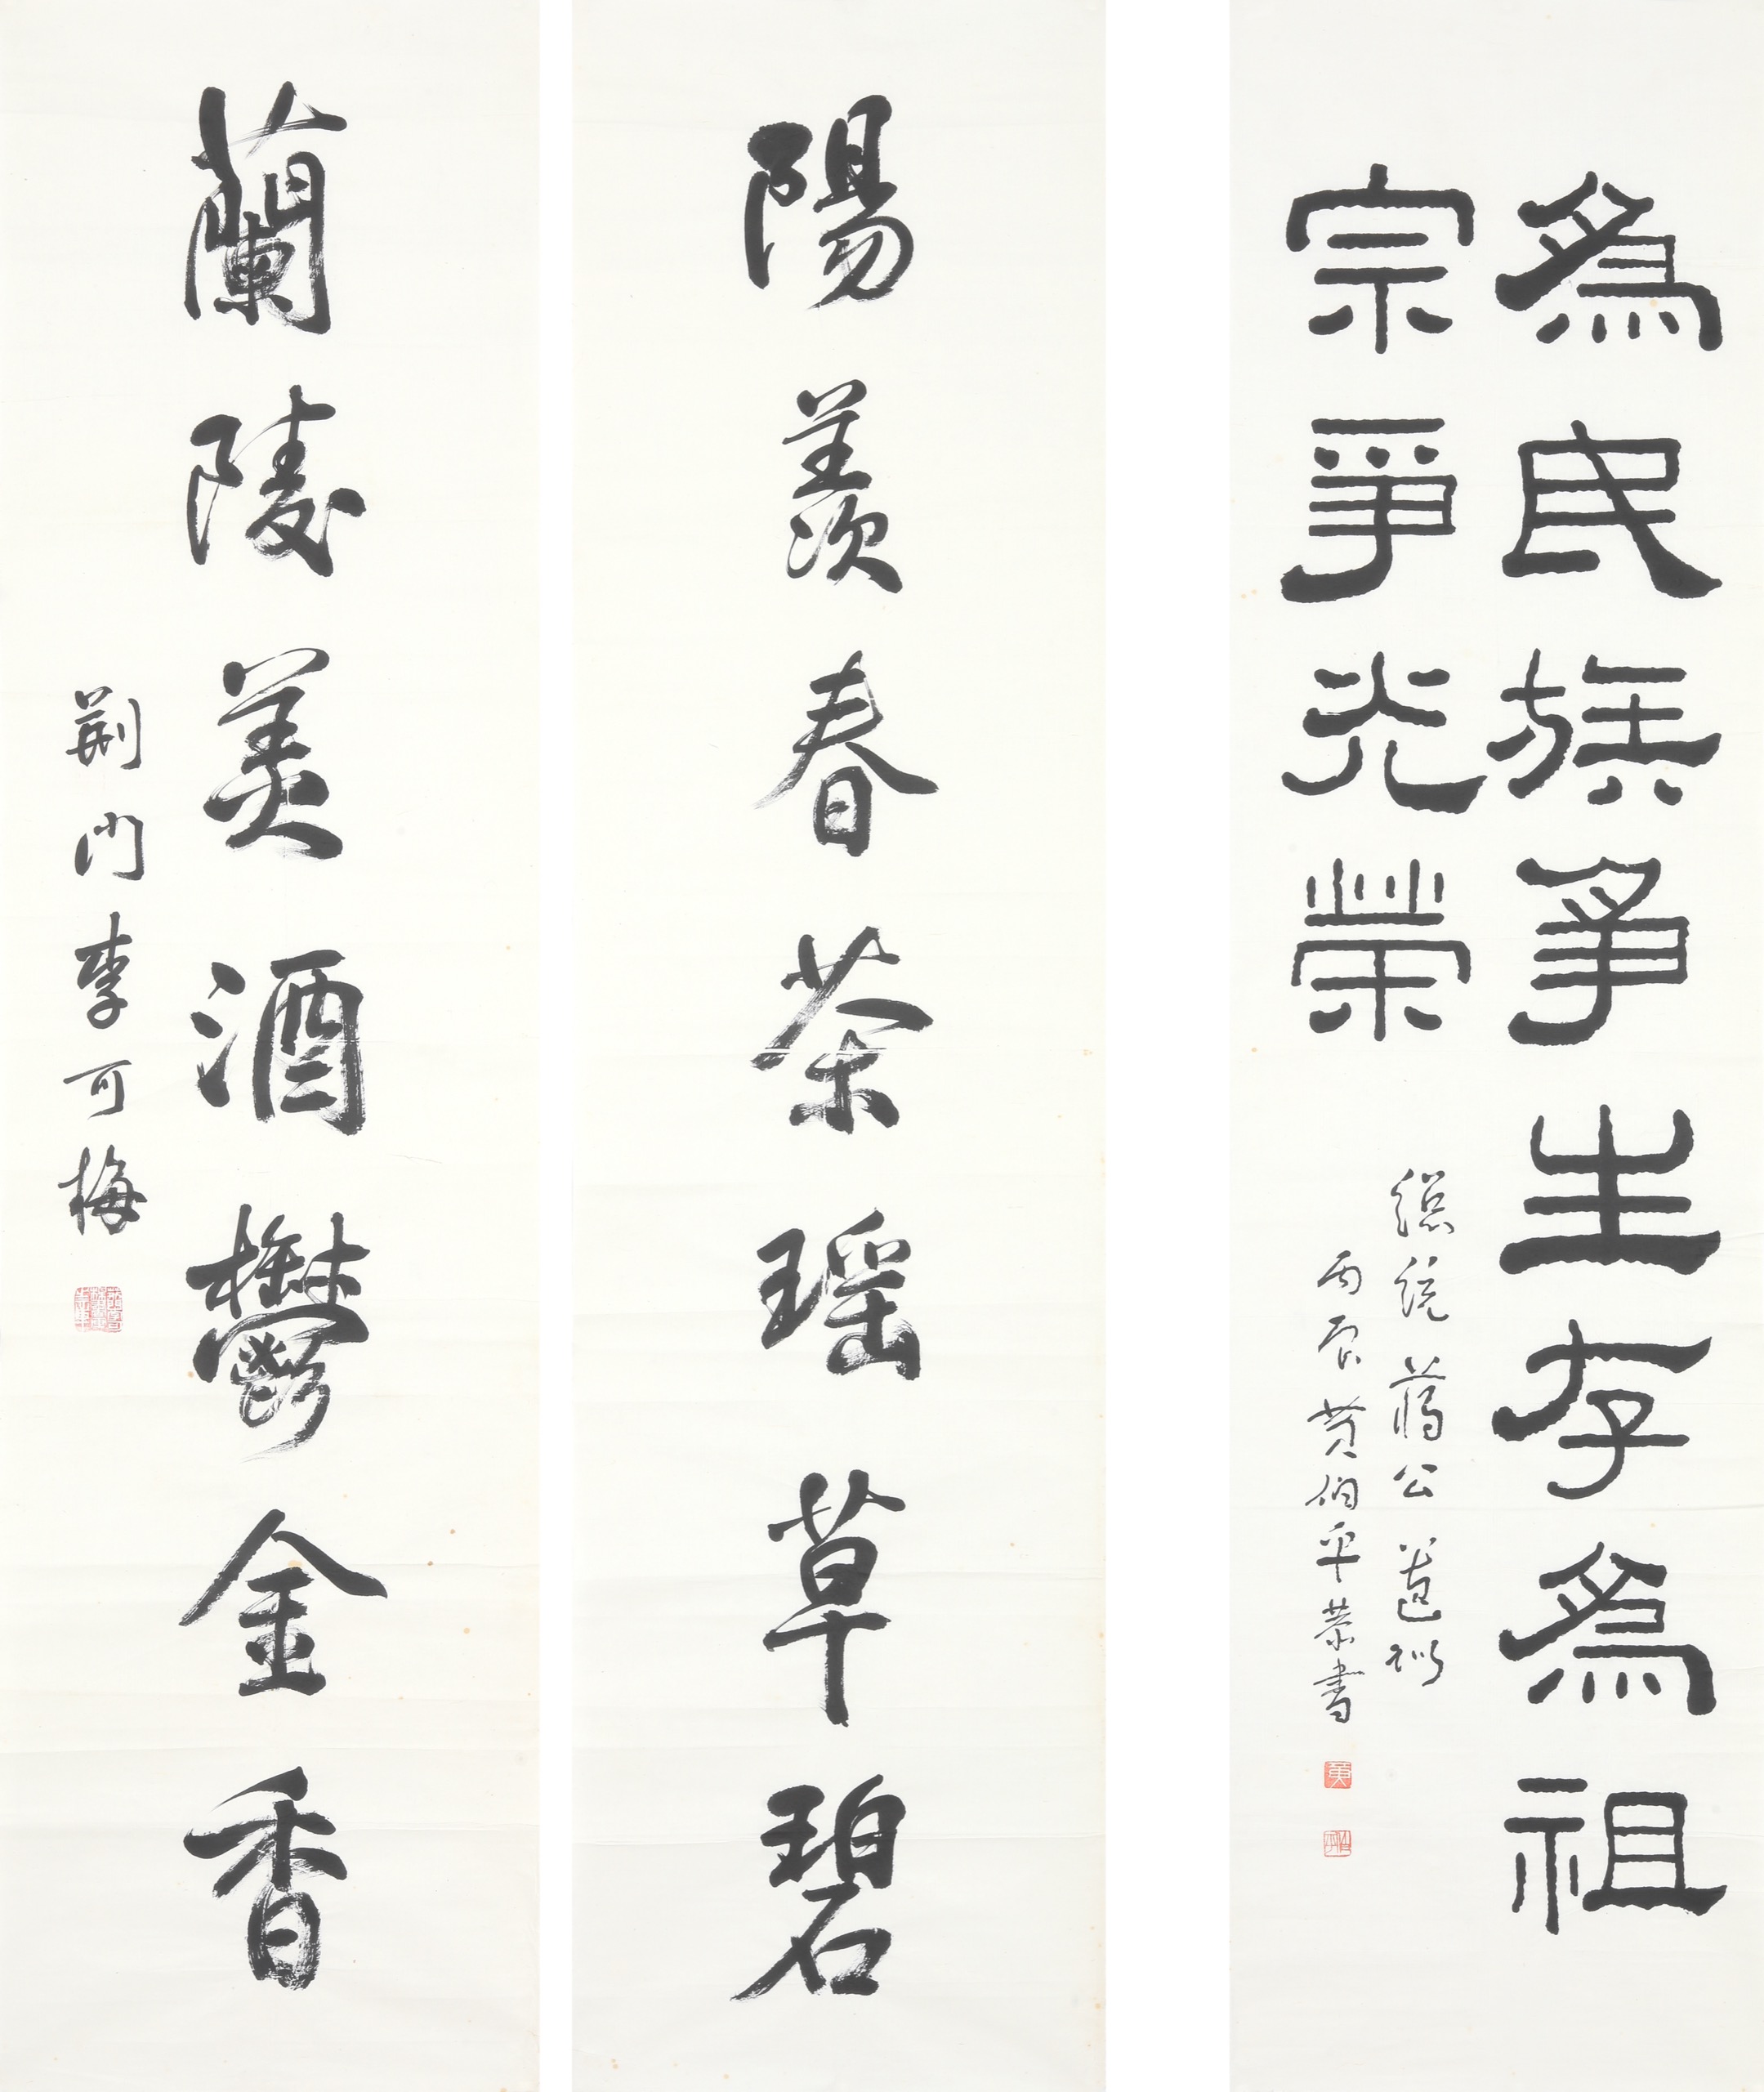 為民族爭生存為祖
宗爭光榮
總統蔣公遺訓
丙辰黃伯平恭書
陽羨春茶瑤草碧
蘭陵美酒鬱金香
荆門李可梅